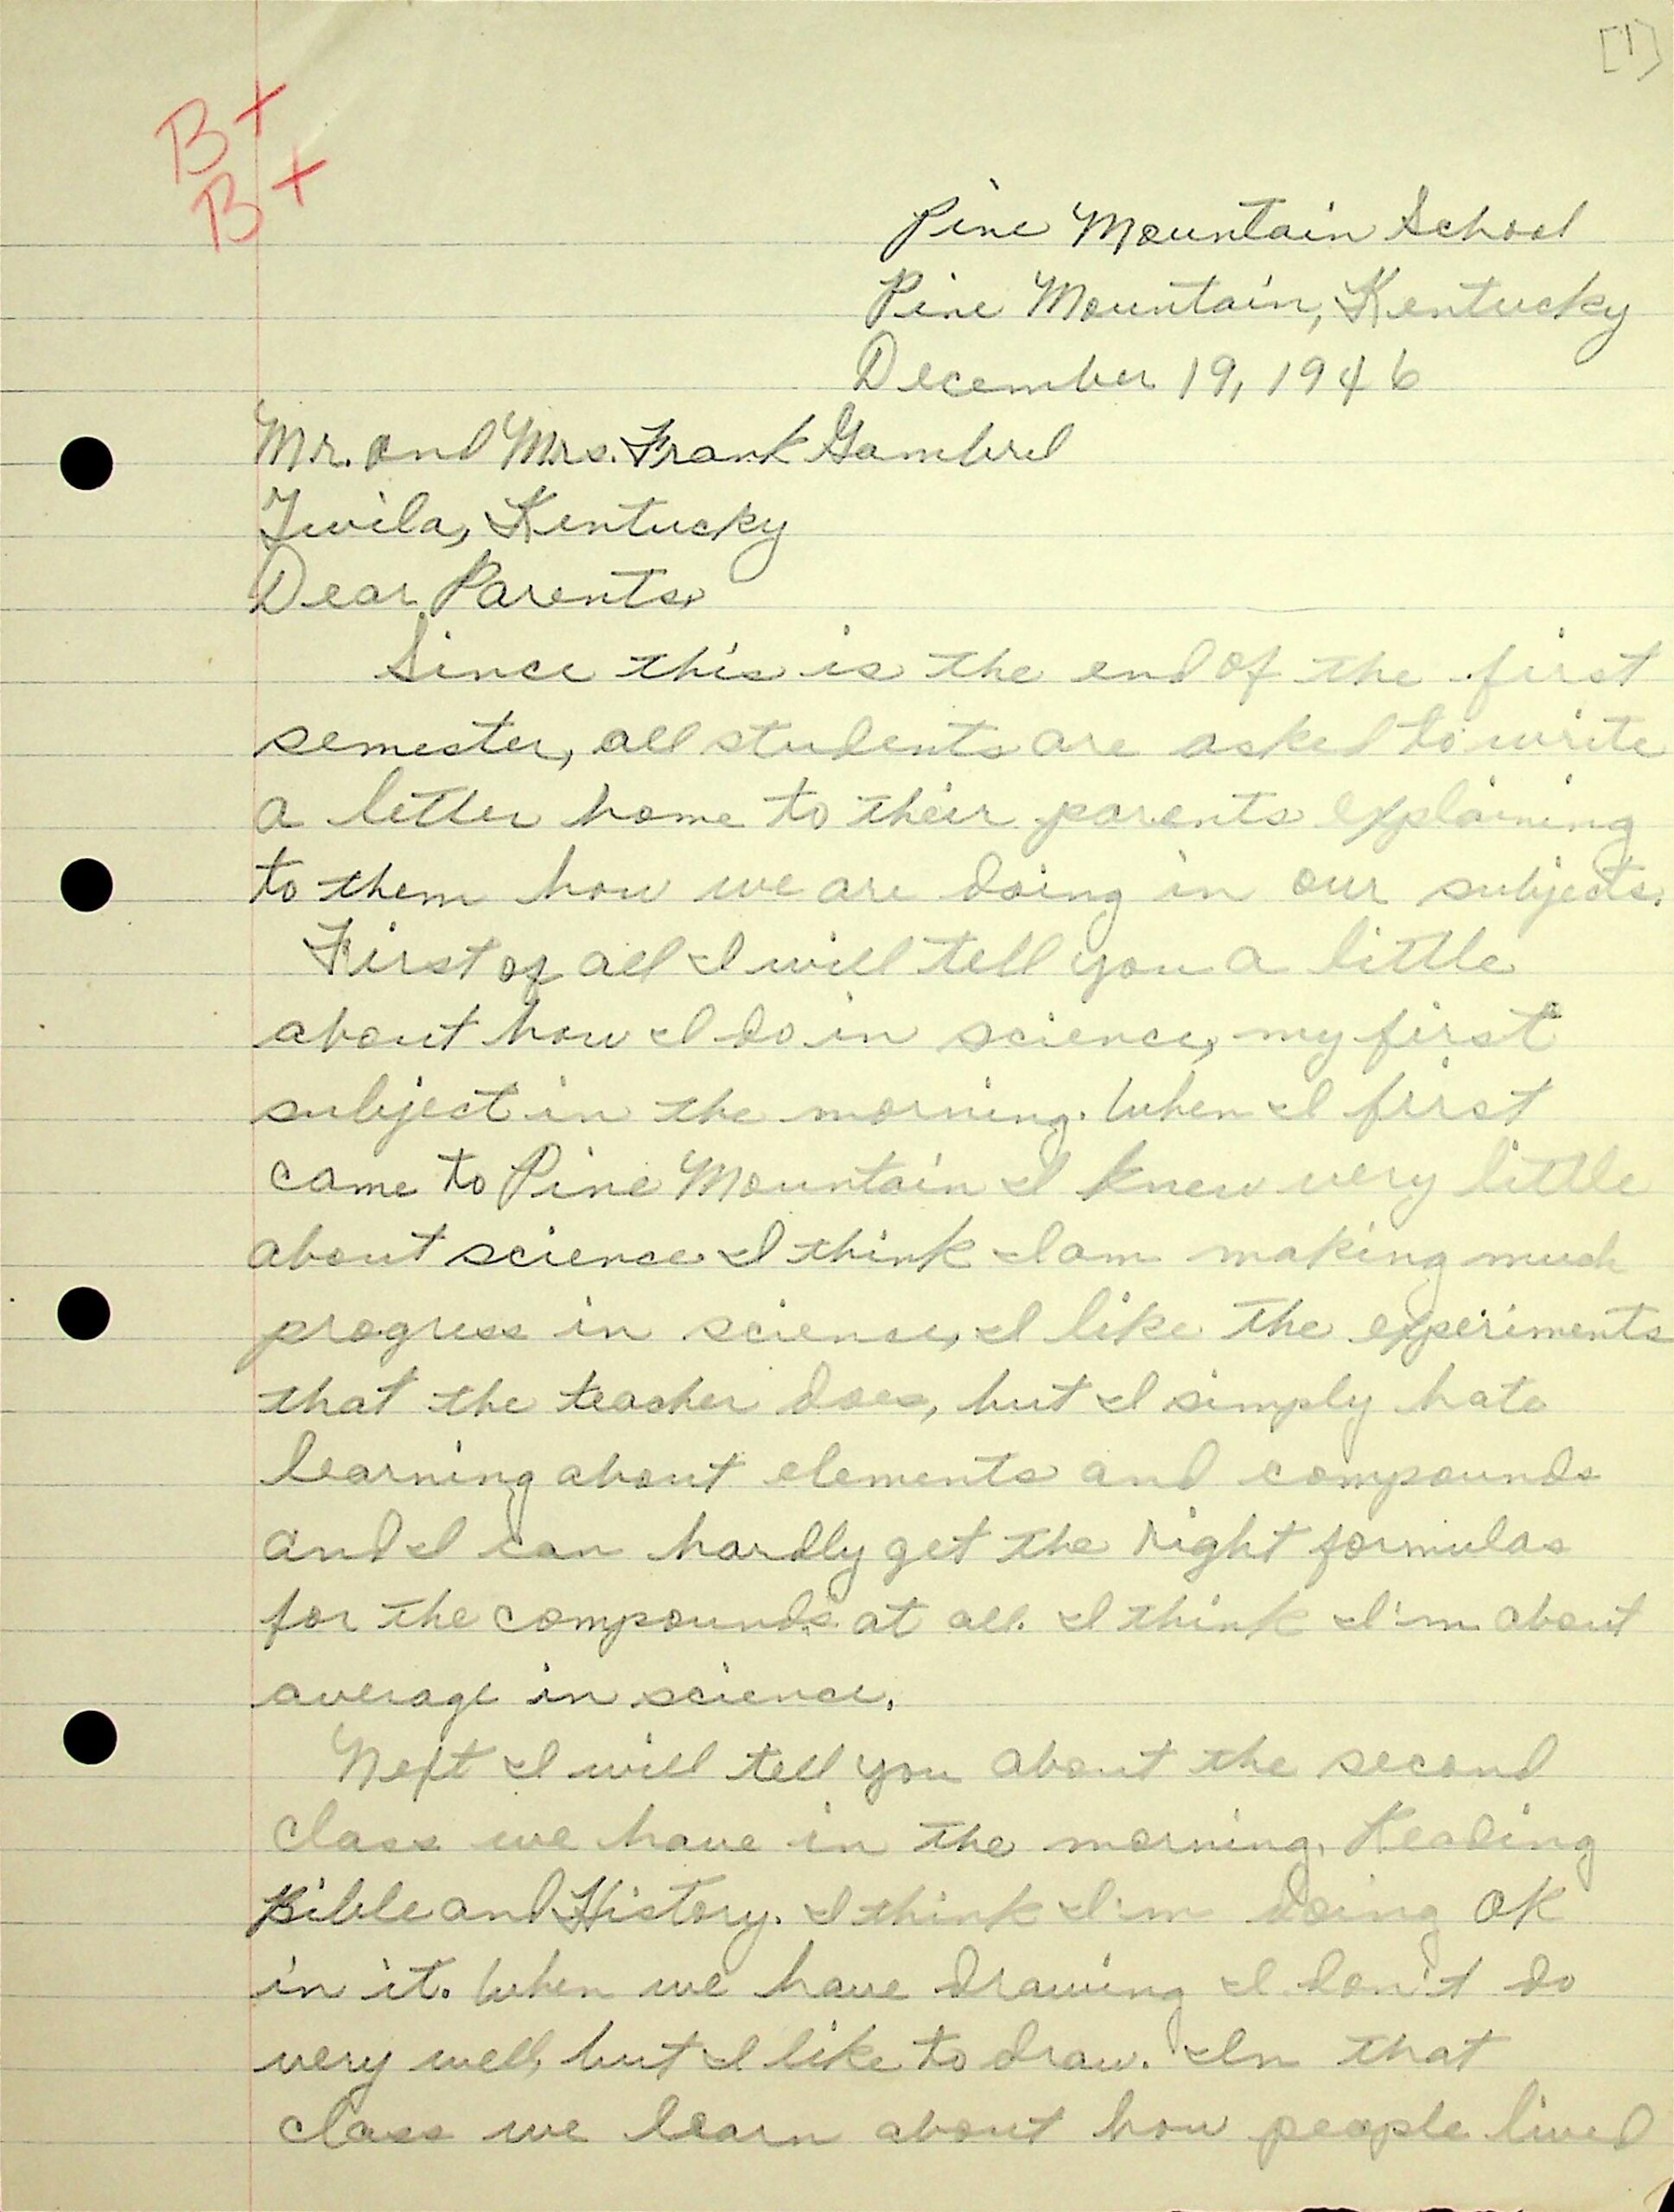 [1]
B+
B+
Pine Mountain School
Pine Mountain, Kentucky
December 19, 1946
Mr. and Mrs. Frank Gambrel
Twila, Kentucky
Dear Parents,
Since this is the end of the first
semester, all students are asked to write
a letter home to their parents explaining
to them how we are doing in our subjects.
First of all I will tell you a little
about how I do in science, my first
subject in the morning. When I first
came to Pine Mountain I knew very little
about science. I think I am making much
progress in science, I like the experiments
that the teacher does, but I simply hate
learning about elements and compounds
and I can hardly get the right formulas
for the compounds at all. I think I'm about
average in science.
Next I will tell you about the second
class we have in the morning. Reading
Bible and History. I think I'm doing OK
in it. When we have drawing I don't do
very well, but I like to draw. In that
class we learn about how people lived